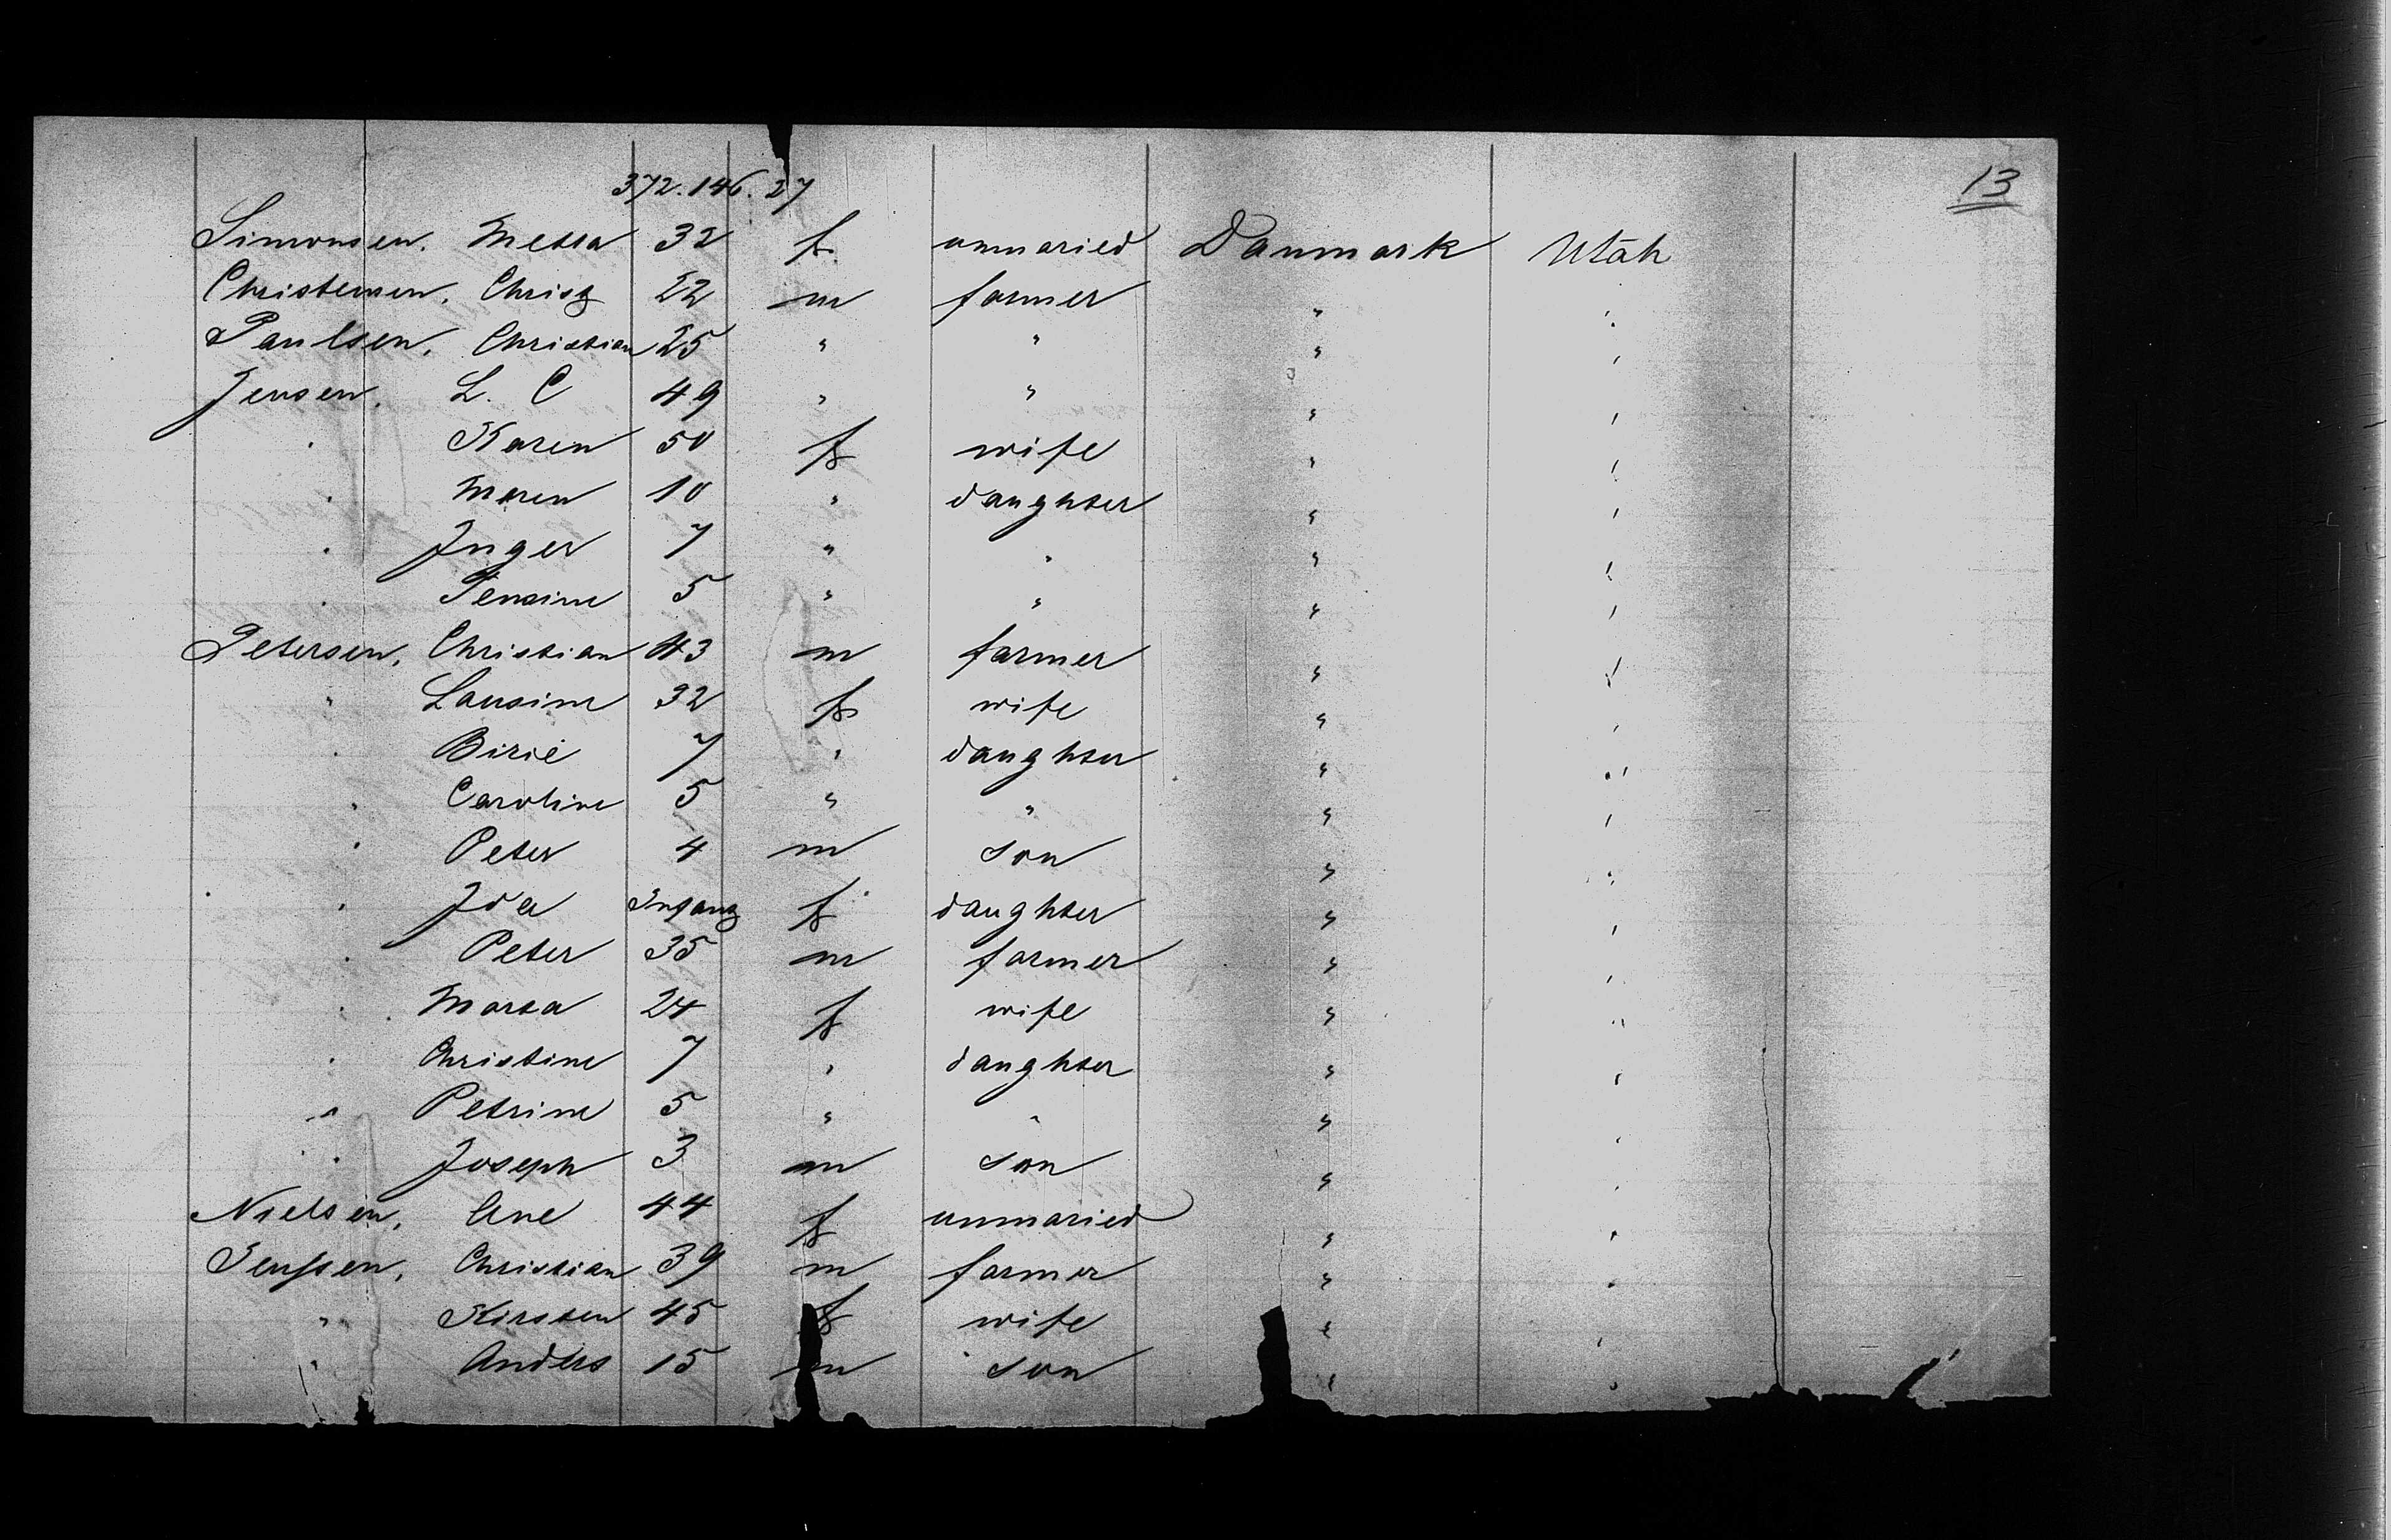 13
372. 146. 27
Simonsen. Metta 32 f. unmaried Danmark Utah
Christensen. 22 m farmer " "
Paulsen. Christian 25 " " " "
Jensen. L. C 49 " " " "
" Karen 50 f wife " "
" Maren 10 " daughter " "
" Inger 7 " " " "
" Jensine 5 " " " "
Petersen, Christian 43 m farmer " "
" Lausine 32 f wife " "
" 7 " daughter " "
" Caroline 5 " " " "
" Peter 4 m son " "
" Ida f daughter " "
" Peter 35 m farmer " "
" Marta 24 f wife " "
" Christine 7 " daughter " "
" Petrine 5 " " " "
" Joseph 3 m son " "
Nielsen, Ane 44 f unmaried " "
Christian 39 m farmer " "
" Kirsten 45 f wife " "
" Anders 15 m son " "